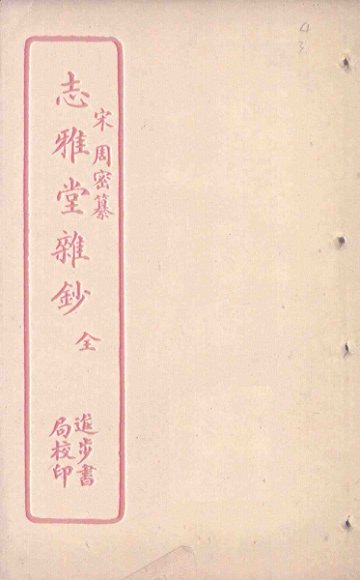 宋周密纂
志雅堂雜鈔 全
進步書
局校印